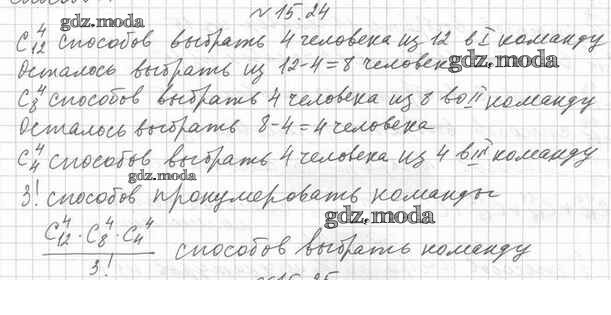 № 15.24
gdz.moda
C₁₂⁴ способов выбрать 4 человека из 12 в I команду
Осталось выбрать из 12-4=8 человек
gdz.moda
C₈⁴ способов выбрать 4 человека из 8 во II команду
Осталось выбрать 8-4=4 человека
C₄⁴ способов выбрать 4 человека из 4 в III команду
gdz.moda
3! способов пронумеровать команды
gdz.moda
C₁₂⁴ · C₈⁴ · C₄⁴
3!
способов выбрать команду